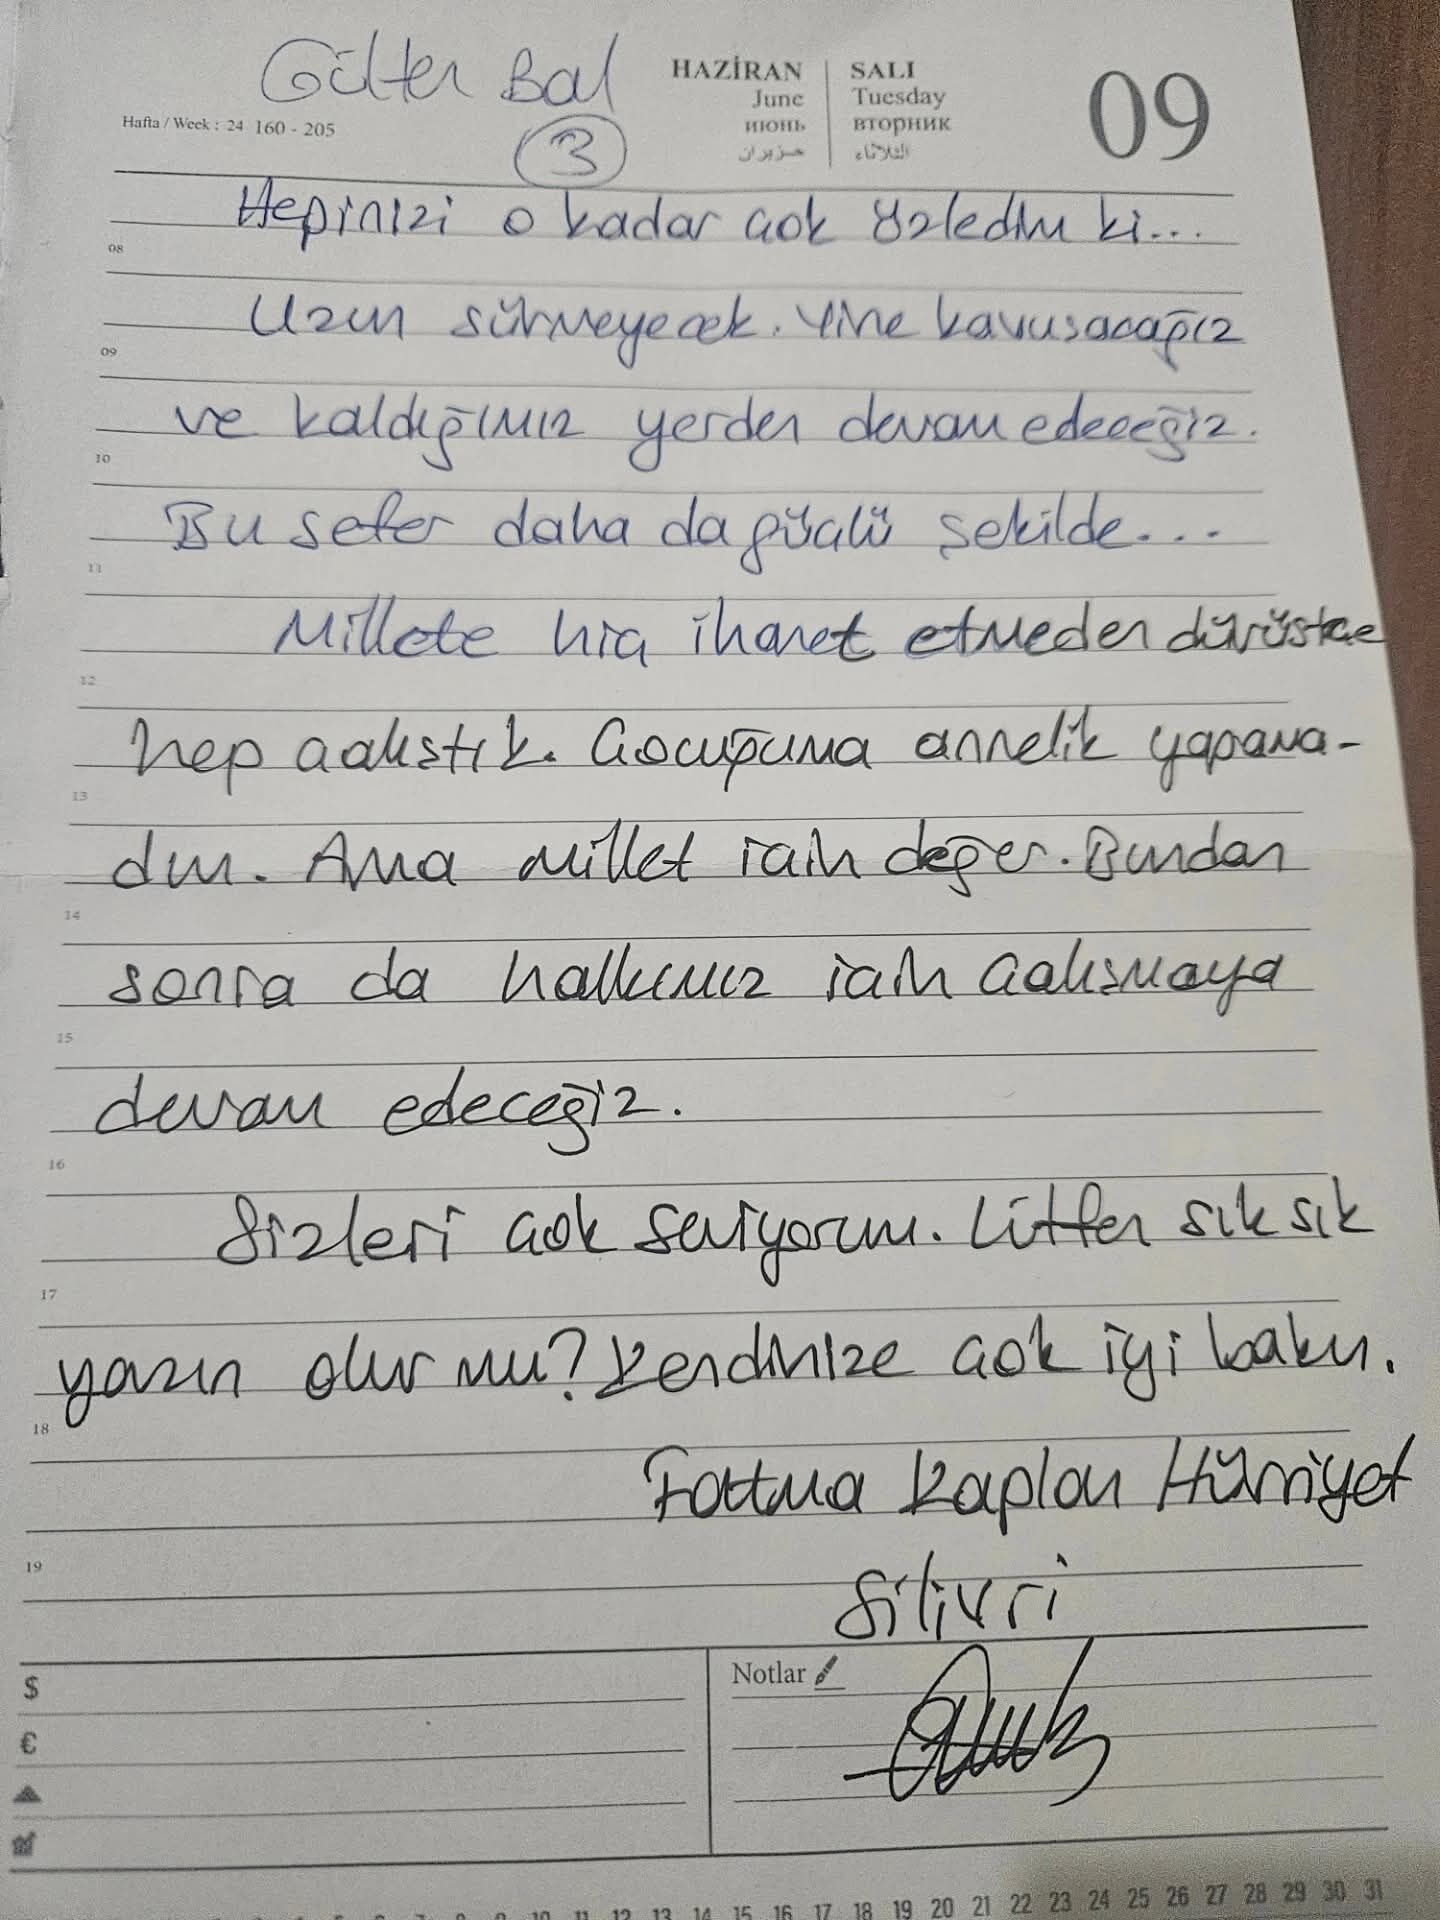 Gülfer Bal
HAZİRAN SALI 09
June Tuesday
июнь вторник
حزيران الثلاثاء
Hafta / Week : 24 160 - 205
3
Hepinizi o kadar çok özledim ki...
08
Uzun sürmeyecek. Yine kavuşacağız
09
ve kaldığımız yerden devam edeceğiz.
10
Bu sefer daha da güçlü şekilde...
11
Millete hiç ihanet etmeden dürüstçe
12
hep çalıştık. Çocuğuma annelik yapama-
13
dım. Ama millet için değer. Bundan
14
sonra da halkımız için çalışmaya
15
devam edeceğiz.
16
Sizleri çok seviyorum. Lütfen sık sık
17
yazın olur mu? Kendinize çok iyi bakın.
18
Fatma Kaplan Hürriyet
19
Silivri
$
Notlar
€
12 13 14 15 16 17 18 19 20 21 22 23 24 25 26 27 28 29 30 31